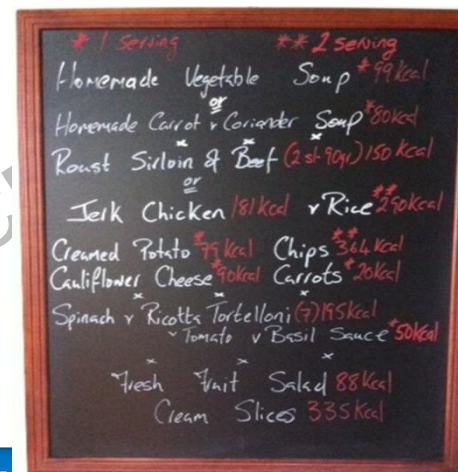 * 1 serving ** 2 serving
Homemade Vegetable Soup *99Kcal
or
Homemade Carrot & Coriander Soup *80Kcal
Roast Sirloin of Beef (2 sl-90gr) 150 Kcal
or
Jerk Chicken 181Kcal & Rice **290Kcal
Creamed Potato *79Kcal Chips **364Kcal
Cauliflower Cheese *90Kcal Carrots *20Kcal
Spinach & Ricotta Tortelloni (7) 195Kcal
Tomato & Basil Sauce *50Kcal
Fresh Fruit Salad 88Kcal
Cream Slices 335Kcal